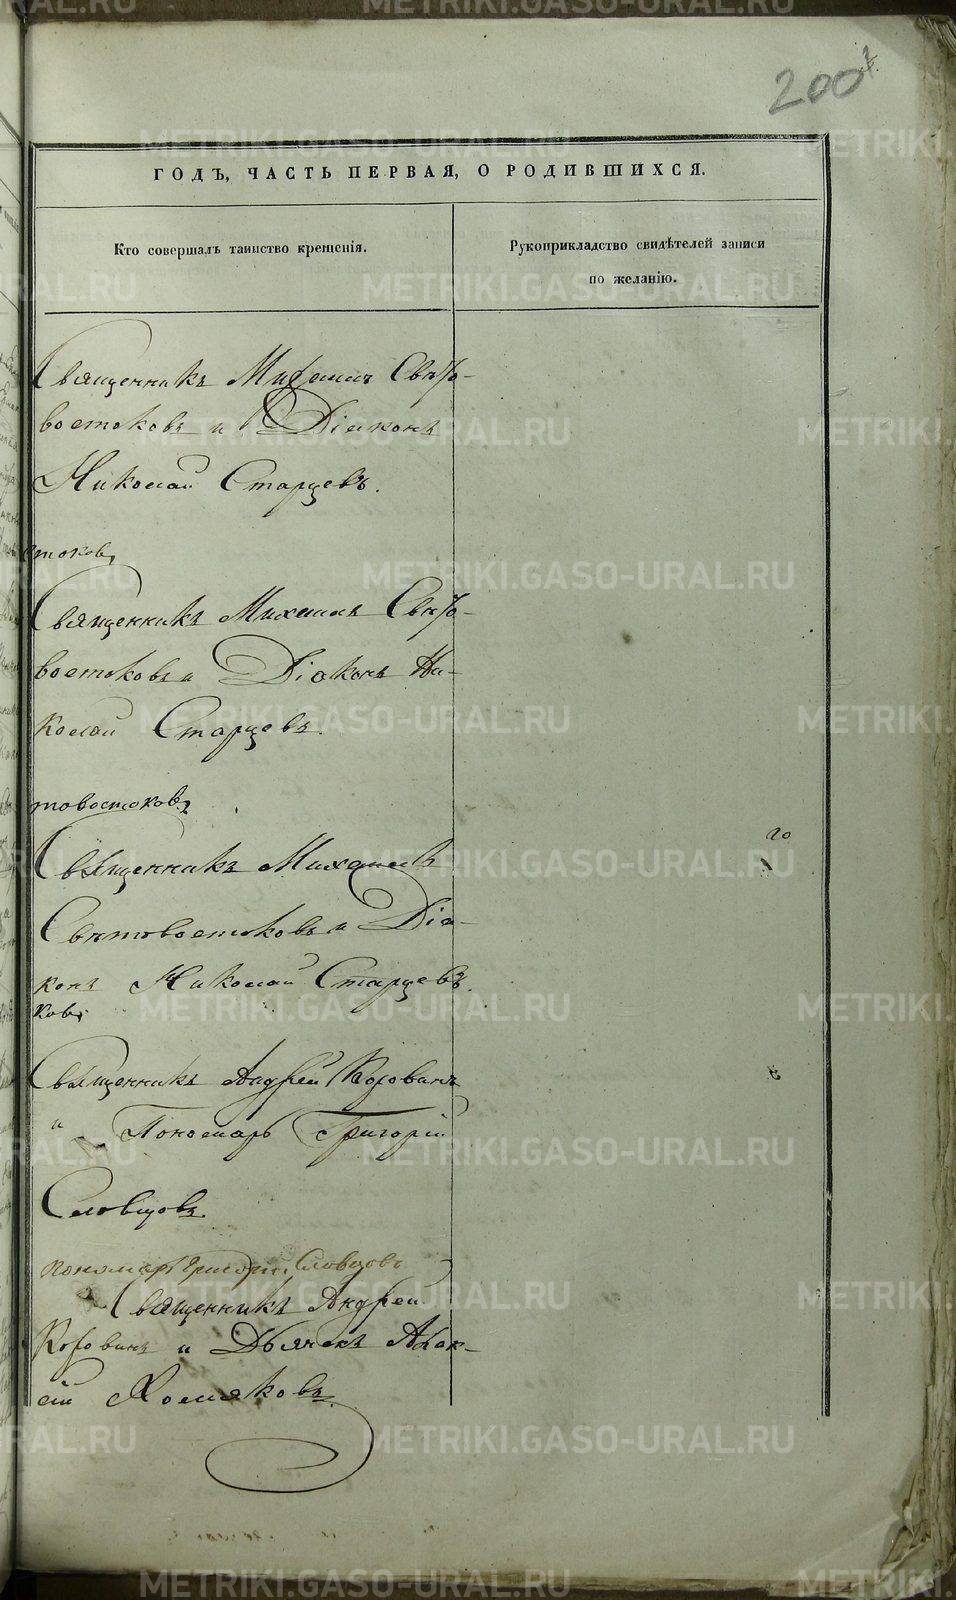 200
ГОДЪ, ЧАСТЬ ПЕРВАЯ, О РОДИВШИХСЯ.
Кто совершалъ таинство крещенія.
Рукоприкладство свидѣтелей записи
по желанію.
Священникъ Михаилъ Свѣто-
востоковъ и Діаконъ
Николай Старцевъ.
стоковъ
Священникъ Михаилъ Свѣто-
востоковъ и Діаконъ Ни-
колай Старцевъ.
товостоковъ
Священникъ Михаилъ
Свѣтовостоковъ и Діа-
конъ Николай Старцевъ.
ковъ
Священникъ Андрей Коровинъ
и Пономарь Григорій
Словцовъ.
пономарь Григорій Словцовъ
Священникъ Андрей
Коровинъ и Дьячекъ
Хомяковъ.
METRIKI.GASO-URAL.RU